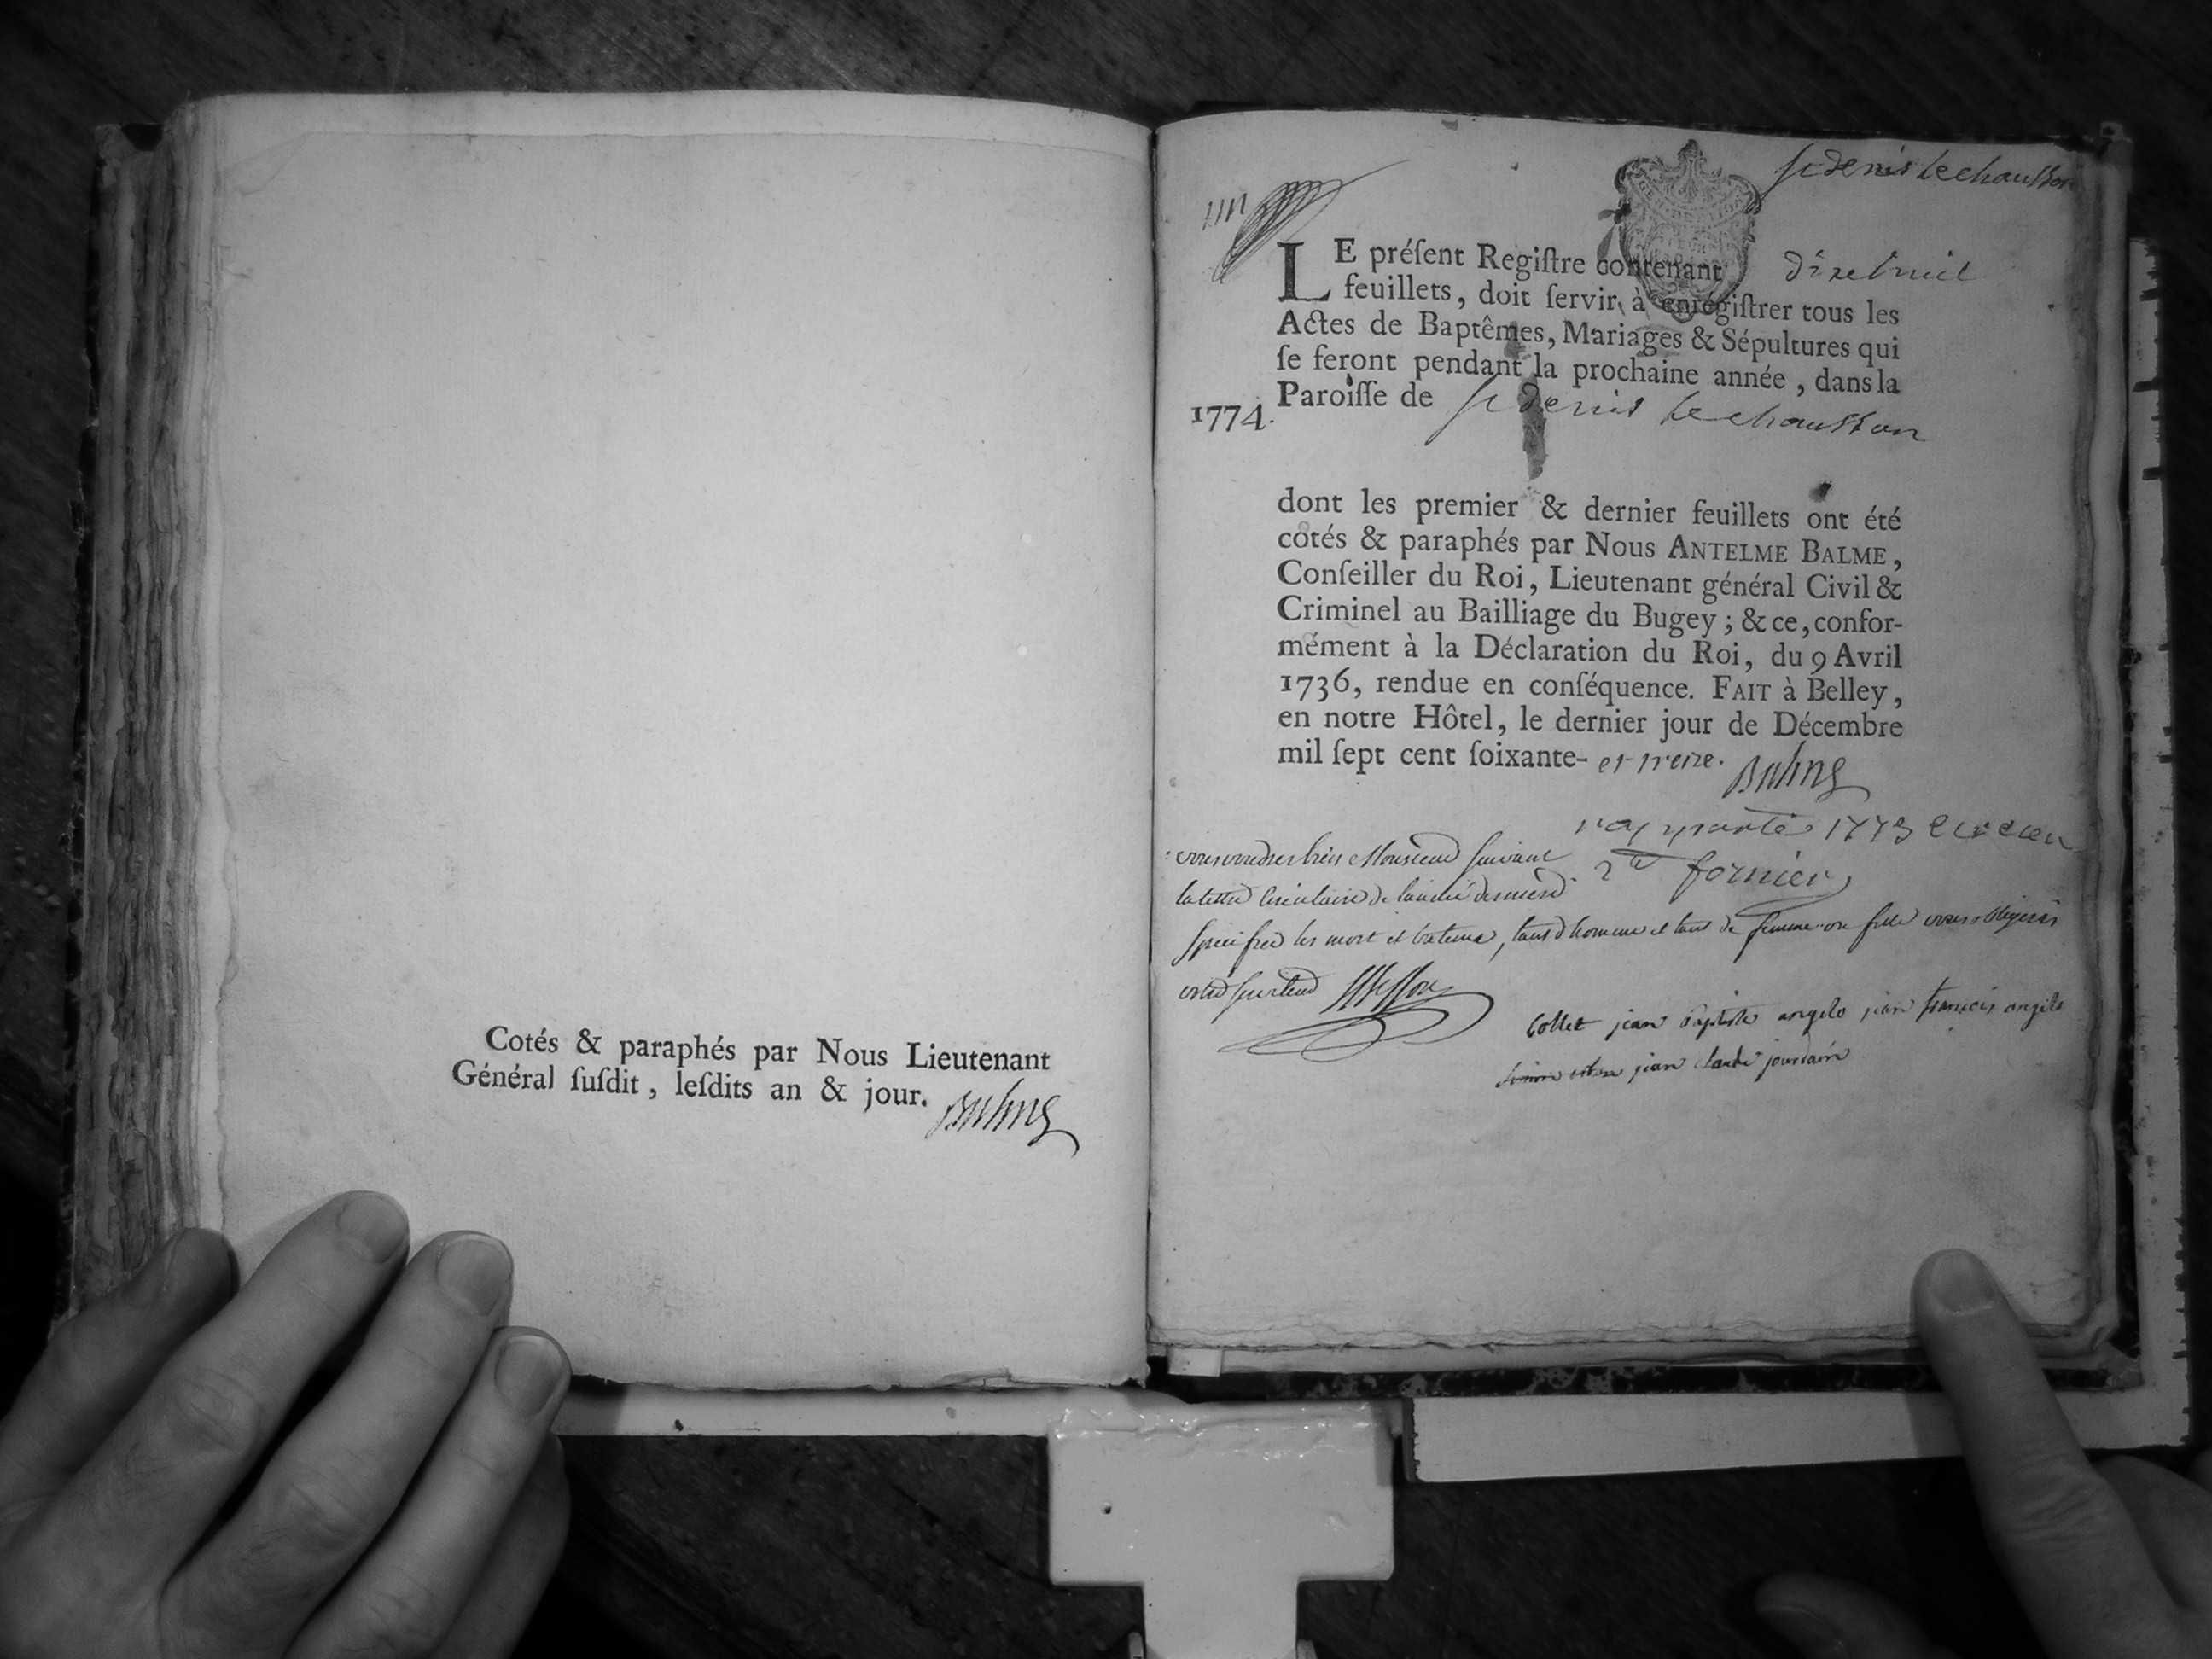 Cotés & paraphés par Nous Lieutenant
Général ſuſdit, leſdits an & jour.
Balme
st denis le chausson
LE préſent Regiſtre contenant dixhuit
feuillets, doit ſervir à enrégiſtrer tous les
Actes de Baptêmes, Mariages & Sépultures qui
ſe feront pendant la prochaine année, dans la
1774. Paroiſſe de st denis le chausson
dont les premier & dernier feuillets ont été
cotés & paraphés par Nous ANTELME BALME,
Conſeiller du Roi, Lieutenant général Civil &
Criminel au Bailliage du Bugey; & ce, confor-
mément à la Déclaration du Roi, du 9 Avril
1736, rendue en conſéquence. FAIT à Belley,
en notre Hôtel, le dernier jour de Décembre
mil ſept cent ſoixante- et treize. Balme
raporté 1773
fornier
vous voudres bien Monsieur suivant
la lettre circulaire de l'année derniere
les mort et batême, tant d'homme et tant de femme ou fille vous obligerés
votre serviteur
Collet jean baptiste angelo jean francois angelo
jean claude jourdain